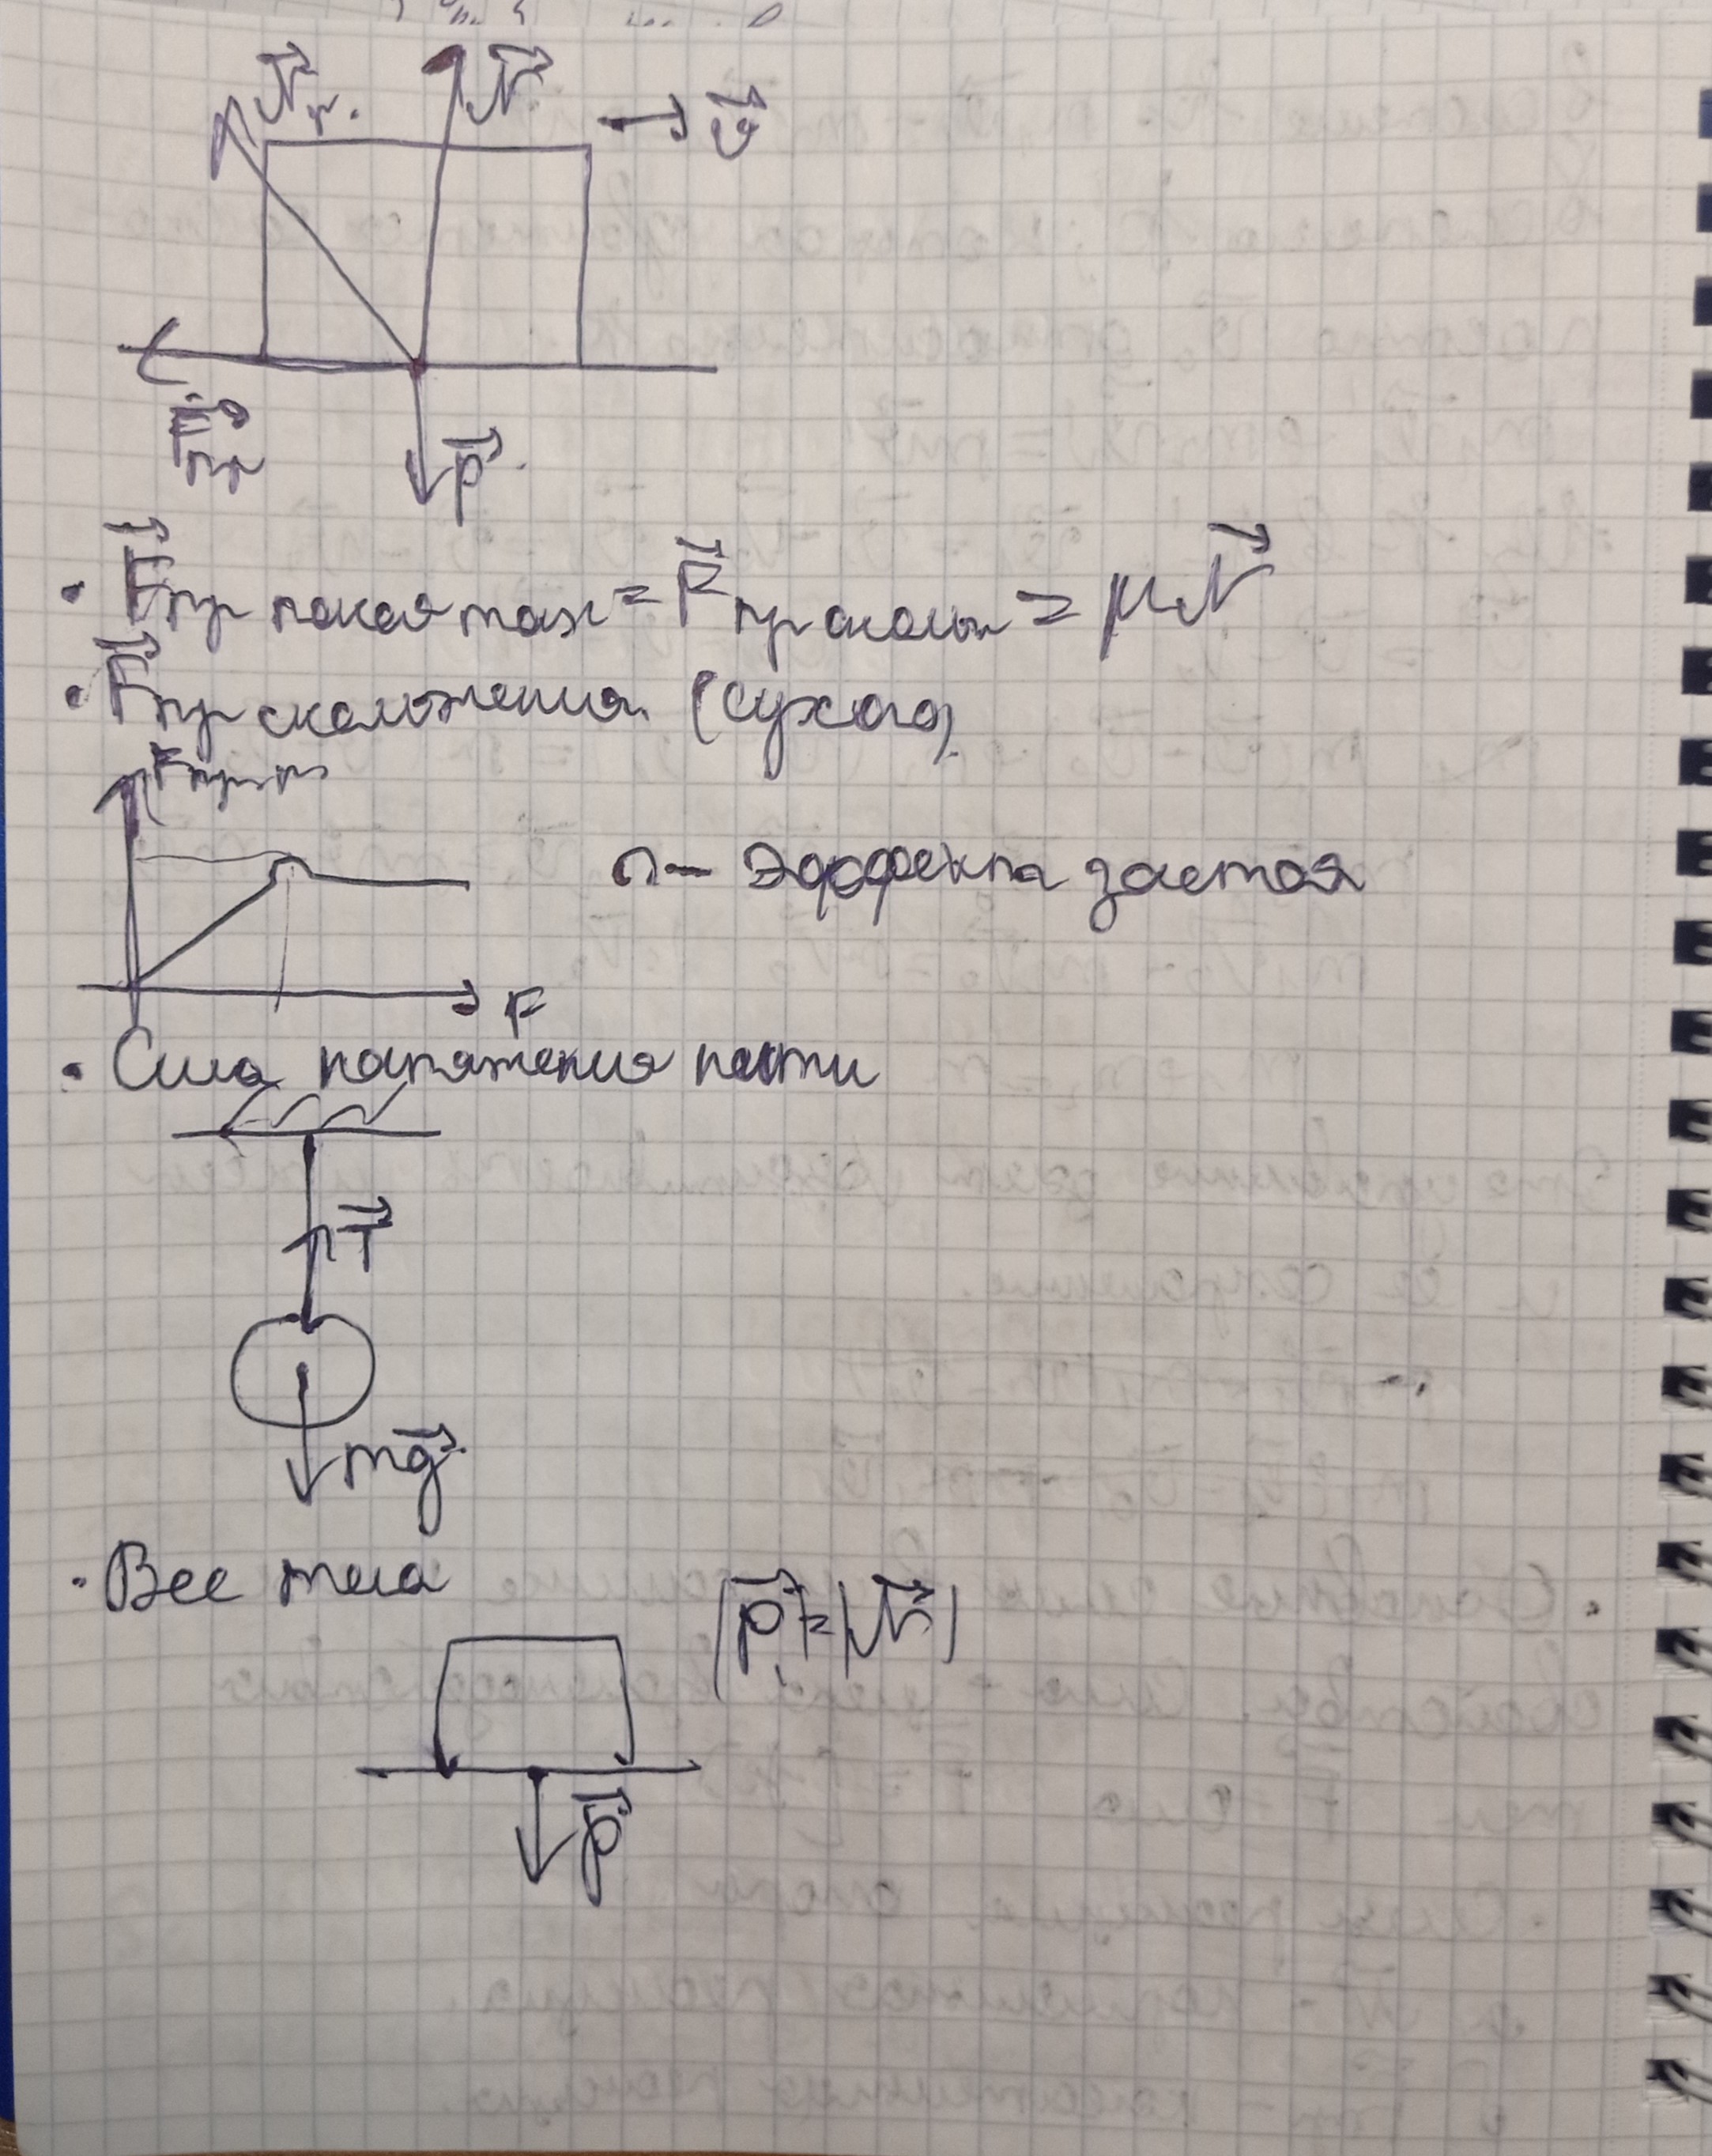 N⃗р. N⃗ v⃗
F⃗тр
P⃗
• F⃗тр покоя max = F⃗тр скольж = μN⃗
• F⃗тр скольжения (сухого)
Fтр п
∩ — Эффект застоя
F
• Сила натяжения нити
T⃗
mg⃗
• Вес тела
|P⃗| = |N⃗|
P⃗